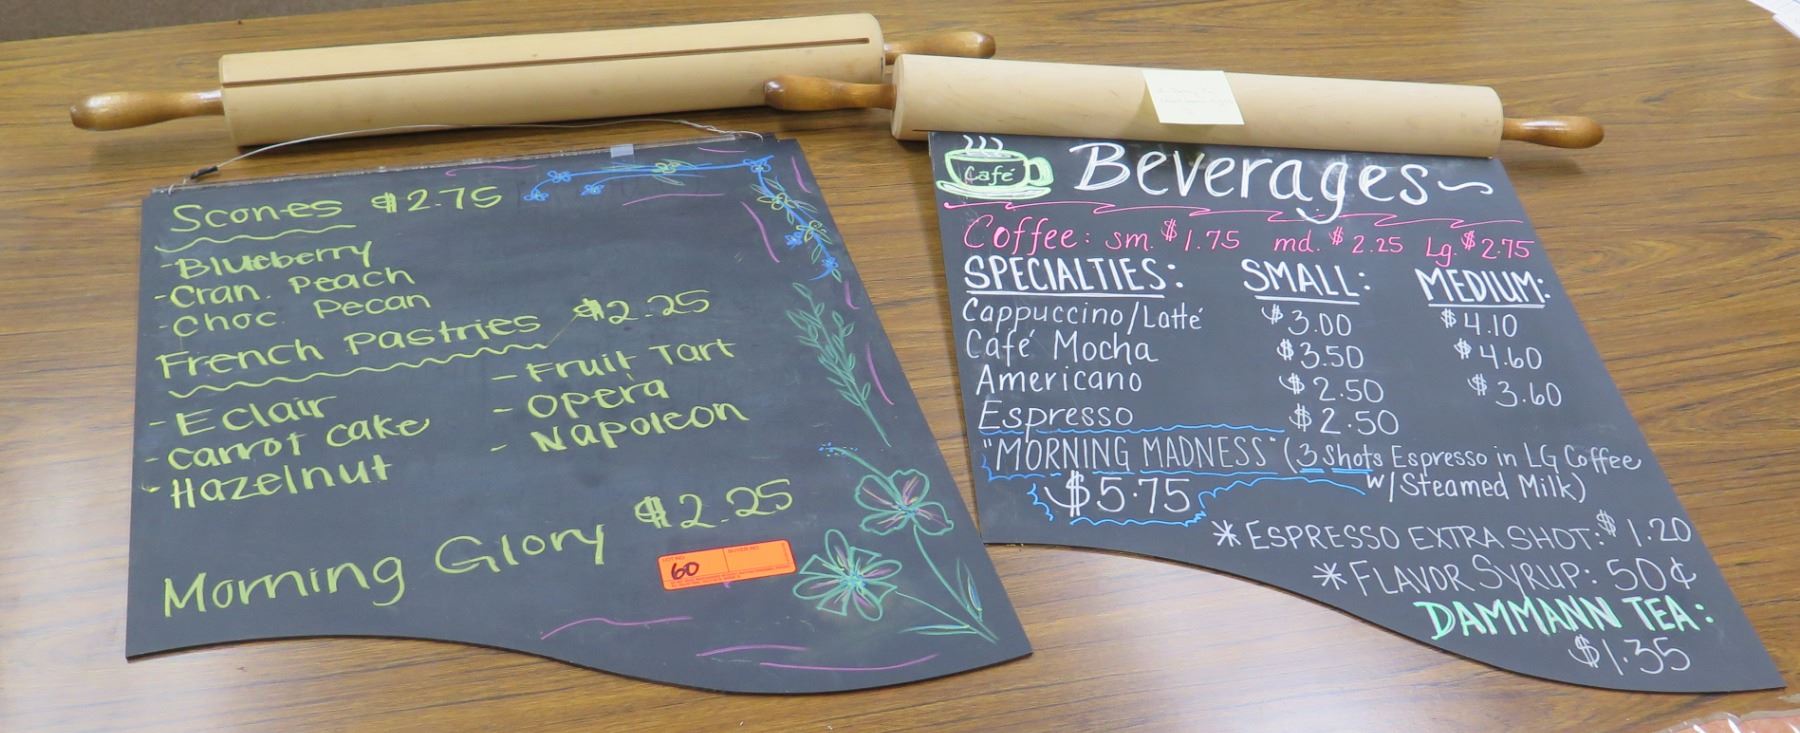 Scones $2.75
-Blueberry
-Cran. Peach
-Choc. Pecan
French Pastries $2.25
- Eclair
- Carrot cake
- Hazelnut
- Fruit Tart
- Opera
- Napoleon
Morning Glory $2.25
60
Café
Beverages~
Coffee: sm. $1.75 md. $2.25 Lg. $2.75
SPECIALTIES: SMALL: MEDIUM:
Cappuccino/Latté $3.00 $4.10
Café Mocha $3.50 $4.60
Americano $2.50 $3.60
Espresso $2.50
"MORNING MADNESS" (3 shots Espresso in LG Coffee
$5.75 w/Steamed Milk)
* ESPRESSO EXTRA SHOT: $1.20
* FLAVOR SYRUP: 50¢
DAMMANN TEA:
$1.35